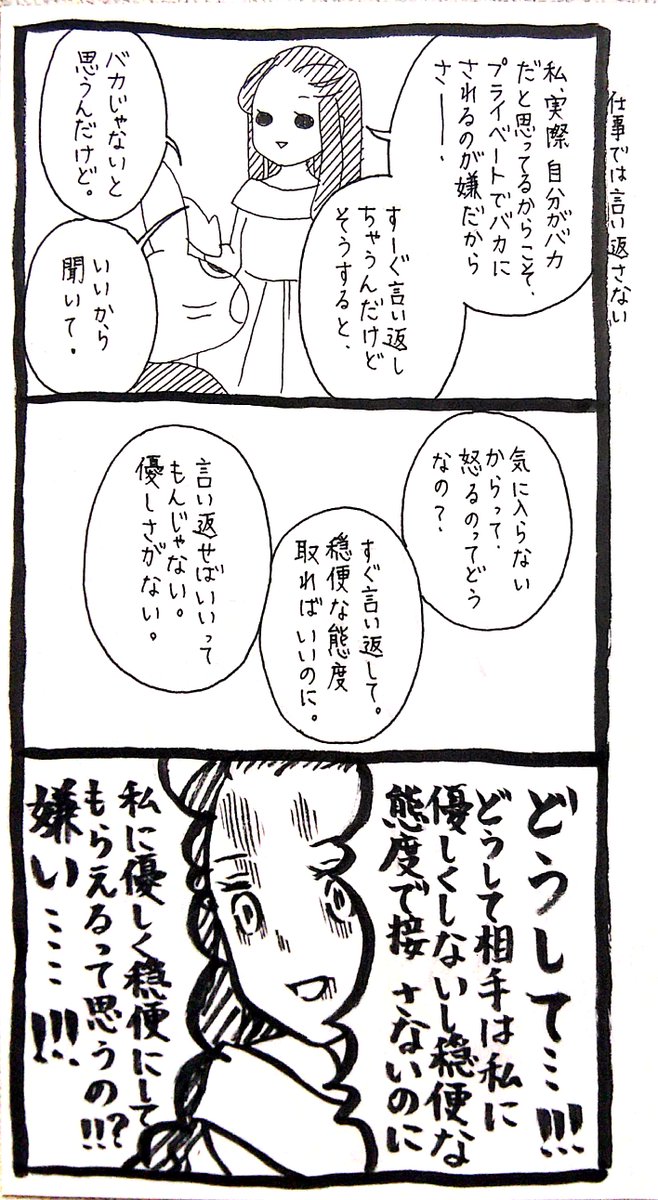 仕事では言い返さない
私、実際自分がバカ
だと思ってるからこそ、
プライベートでバカに
されるのが嫌だから
さーー、
すーぐ言い返し
ちゃうんだけど
そうすると、
バカじゃないと
思うんだけど。
いいから
聞いて。
気に入らない
からって、
怒るのってどう
なの？
すぐ言い返して。
穏便な態度
取ればいいのに。
言い返せばいいって
もんじゃない。
優しさがない。
どうして…!!!
どうして相手は私に
優しくしないし穏便な
態度で接さないのに
私に優しく穏便にして
もらえるって思うの!!?
嫌い……!!!